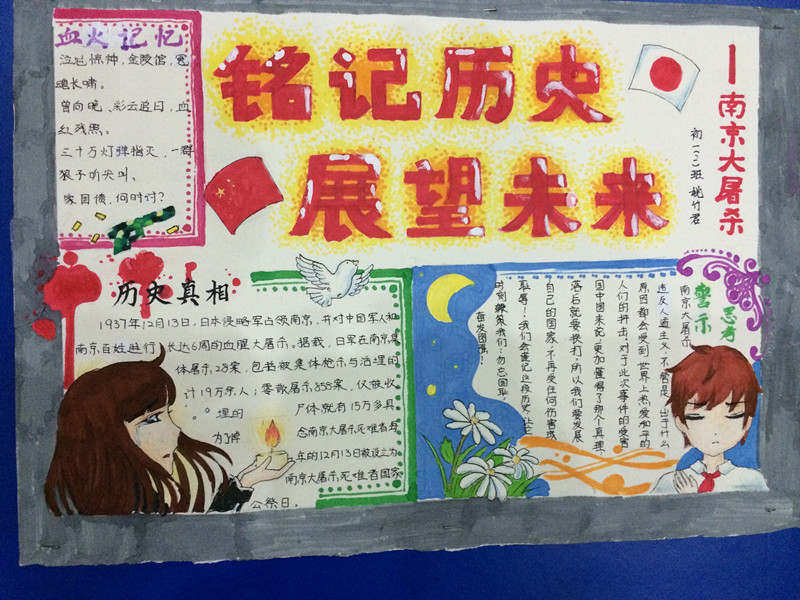 铭记历史
展望未来
—南京大屠杀
初一(2)班姚竹君
血火记忆
泣鬼惊神，金陵倌，冤
魂长啸。
曾向晚，彩云追日，血
红残照。
三十万灯弹指灭，一群
狼子响尖叫。
家国债，何时讨？
历史真相
1937年12月13日，日本侵略军占领南京，并对中国军人和
南京百姓进行长达6周的血腥大屠杀。据载，日军在南京集
体屠杀28案，包括被集体枪杀与活埋的
计19万余人；零散屠杀858案，仅被收
埋的尸体就有15万多具。
为了悼念南京大屠杀死难者每
年的12月13日被设立为
南京大屠杀死难者国家
公祭日。
警示思考
南京大屠杀
违反人道主义，不管是出于什么
原因都会受到世界上热爱和平的
人们的抨击。对于此次事件的受害
国中国来说，更加催醒了那个真理：
落后就要挨打。所以我们要发展
自己的国家，不再受任何伤害或
耻辱！我们会谨记这段历史，让之
时刻鞭策我们：勿忘国耻，
奋发图强！